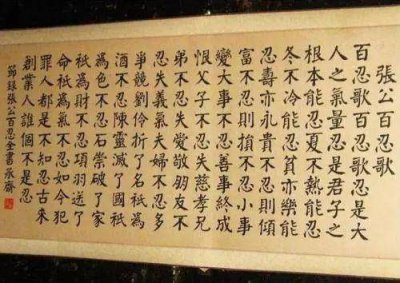 張公百忍歌
百忍歌百忍歌忍是大
人之氣量忍是君子之
根本能忍夏不熱能忍
冬不冷能忍貧亦樂能
忍壽亦永貴不忍則傾
富不忍則損不忍小事
變大事不忍善事終成
恨父子不忍失慈孝兄
弟不忍失愛敬朋友不
忍失義氣夫婦不忍多
爭競劉伶折了名祇為
酒不忍陳靈滅了國祇
為色不忍石崇破了家
祇為財不忍項羽送了
命祇為氣不忍如今犯
罪人都是不知忍古來
創業人誰個不是忍
節錄張公百忍全書承齋